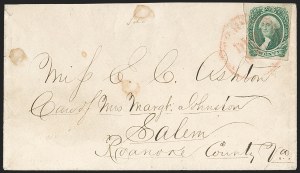 Miss E. C. Ashton
Care of Mrs Margt. Johnston
Salem
Roanoke County Va.